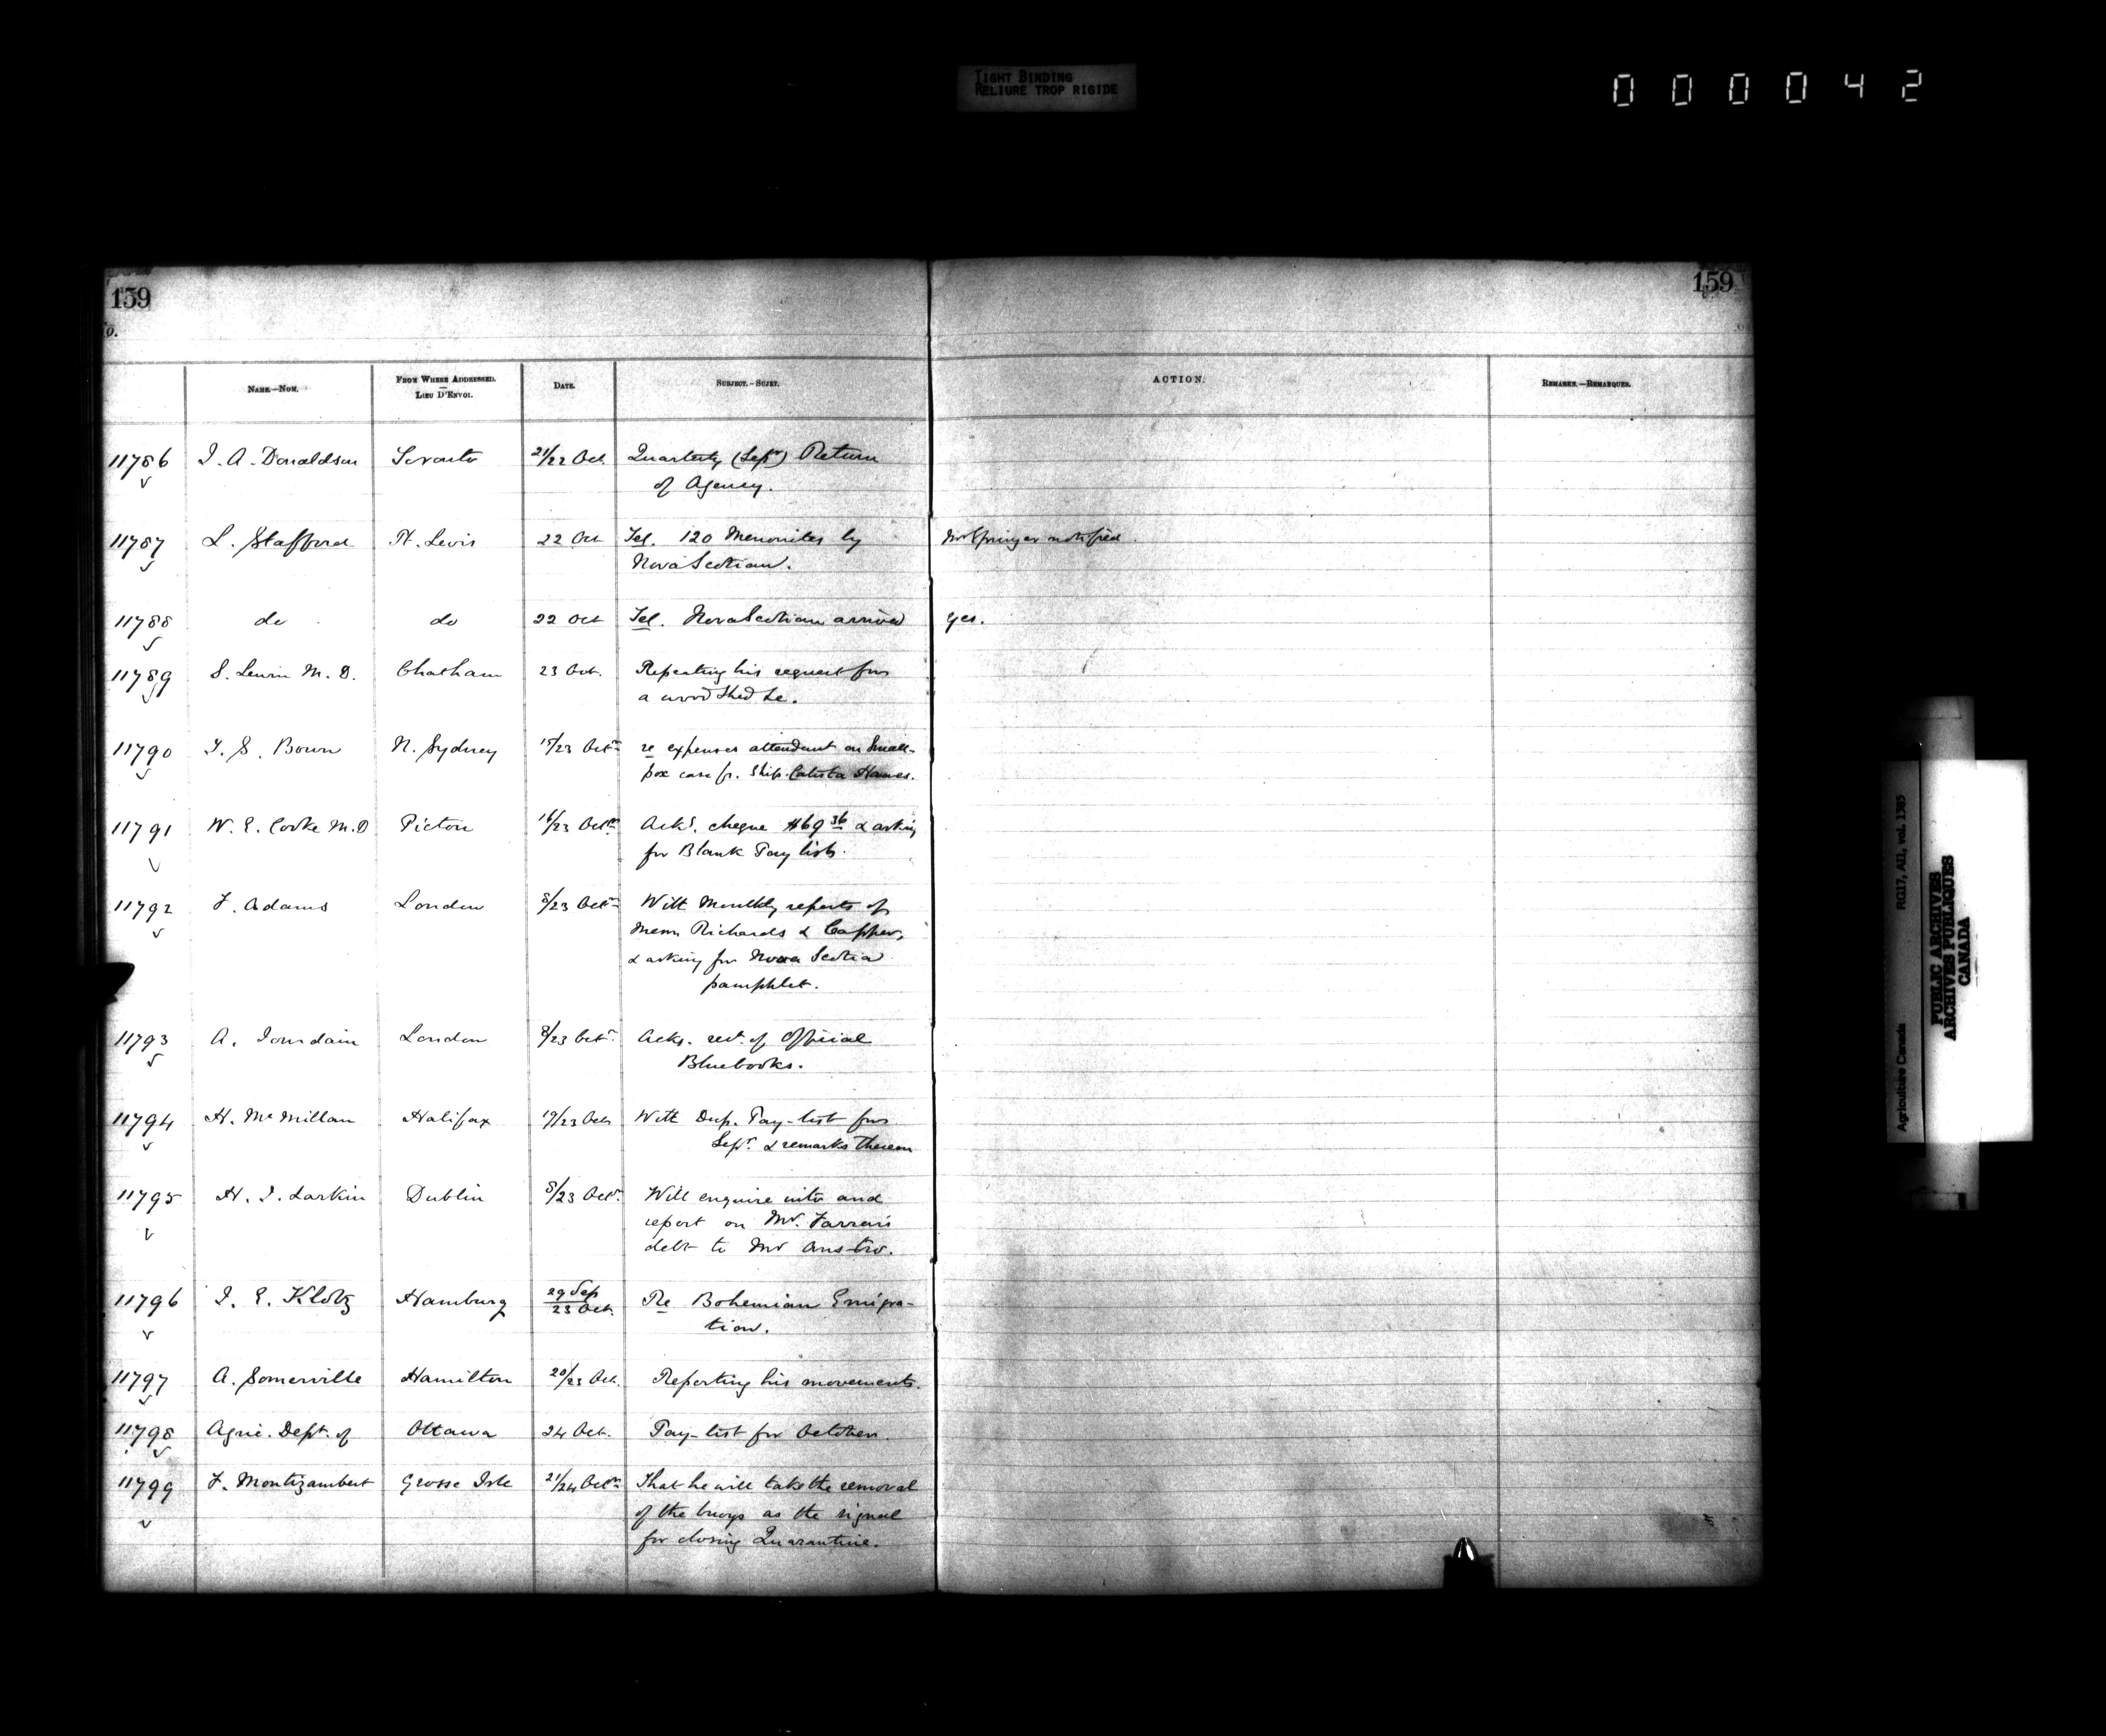 TIGHT BINDING
RELIURE TROP RIGIDE
000042
159
159
o.
NAME.—NOM.
FROM WHERE ADDRESSED.
—
LIEU D'ENVOI.
DATE.
SUBJECT.—SUJET.
ACTION.
REMARKS.—REMARQUES.
11786 J. A. Donaldson Toronto 21/22 Oct. Quarterly (Sepr) Return
of Agency.
11787 L. Stafford Pt. Levis 22 Oct Tel. 120 Menonites by Mr Springer notified.
Nova Scotian.
11788 do do 22 Oct Tel. Nova Scotian arrived Yes.
11789 S. Lewin M. D. Chatham 23 Oct. Repeating his request for
a wood shed &c.
11790 T. S. Bown N. Sydney 15/23 Octr re expenses attendant on Small-
pox case fr. Ship. Calista Hawes.
11791 W. E. Cooke M.D Pictou 16/23 Octr Acks. cheque $69 36 & asking
for Blank Pay lists.
11792 F. Adams London 8/23 Octr With Monthly reports of
Messrs Richards & Capper,
& asking for Nova Scotia
pamphlet.
11793 A. Jourdain London 8/23 Octr. Acks. rect. of Official
Bluebooks.
11794 H. McMillan Halifax 19/23 Oct With Dup. Pay-list for
Sepr. & remarks thereon
11795 H. J. Larkin Dublin 8/23 Octr. Will enquire into and
report on Mr. Farrar's
debt to Mr
11796 J. E. Klotz Hamburg 29 Sep
23 Oct. Re Bohemian Emigra-
tion.
11797 A. Somerville Hamilton 20/23 Oct. Reporting his movements.
11798 Agric. Dept. of Ottawa 24 Oct. Pay-list for October.
11799 F. Montizambert Grosse Isle 21/24 Octr That he will take the removal
of the buoys as the signal
for closing Quarantine.
Agriculture Canada RG17, AII, vol. 1385
PUBLIC ARCHIVES
ARCHIVES PUBLIQUES
CANADA